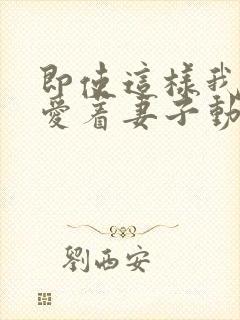 即使這樣我
愛着妻子動
劉西安